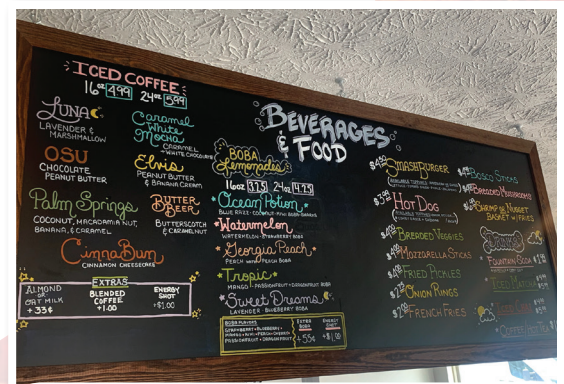 ICED COFFEE
16oz 4.99 24oz 5.99
LUNA
LAVENDER &
MARSHMALLOW
OSU
CHOCOLATE
PEANUT BUTTER
Palm Springs
COCONUT, MACADAMIA NUT,
BANANA, & CARAMEL
Caramel
White
Mocha
CARAMEL
+ WHITE CHOCOLATE
Elvis
PEANUT BUTTER
& BANANA CREAM
BUTTER
BEER
BUTTERSCOTCH
& CARAMEL NUT
CinnaBun
CINNAMON CHEESECAKE
EXTRAS
ALMOND
OR
OAT MILK
+ 33¢
BLENDED
COFFEE
+1.00
ENERGY
SHOT
+$1.00
BEVERAGES
& FOOD
BOBA
Lemonades
16oz 3.75 24oz 4.25
Ocean Potion
BLUE RAZZ-COCONUT-KIWI BOBA
Watermelon
WATERMELON-STRAWBERRY BOBA
Georgia Peach
PEACH WITH PEACH BOBA
Tropic
MANGO-PASSIONFRUIT+DRAGONFRUIT BOBA
Sweet Dreams
LAVENDER-BLUEBERRY BOBA
BOBA FLAVORS
STRAWBERRY•BLUEBERRY•
MANGO•KIWI•PEACH•CHERRY•
PASSIONFRUIT•DRAGONFRUIT
EXTRA
BOBA
+55¢
ENERGY
SHOT
+$1.00
SMASHBURGER
HOT DOG
BREADED VEGGIES
MOZZARELLA STICKS
FRIED PICKLES
ONION RINGS
FRENCH FRIES
BOSCO STICKS
BREADED MUSHROOMS
SHRIMP OR NUGGET
BASKET W/ FRIES
DRINKS
FOUNTAIN SODA
ICED MATCHA
COFFEE/HOT TEA